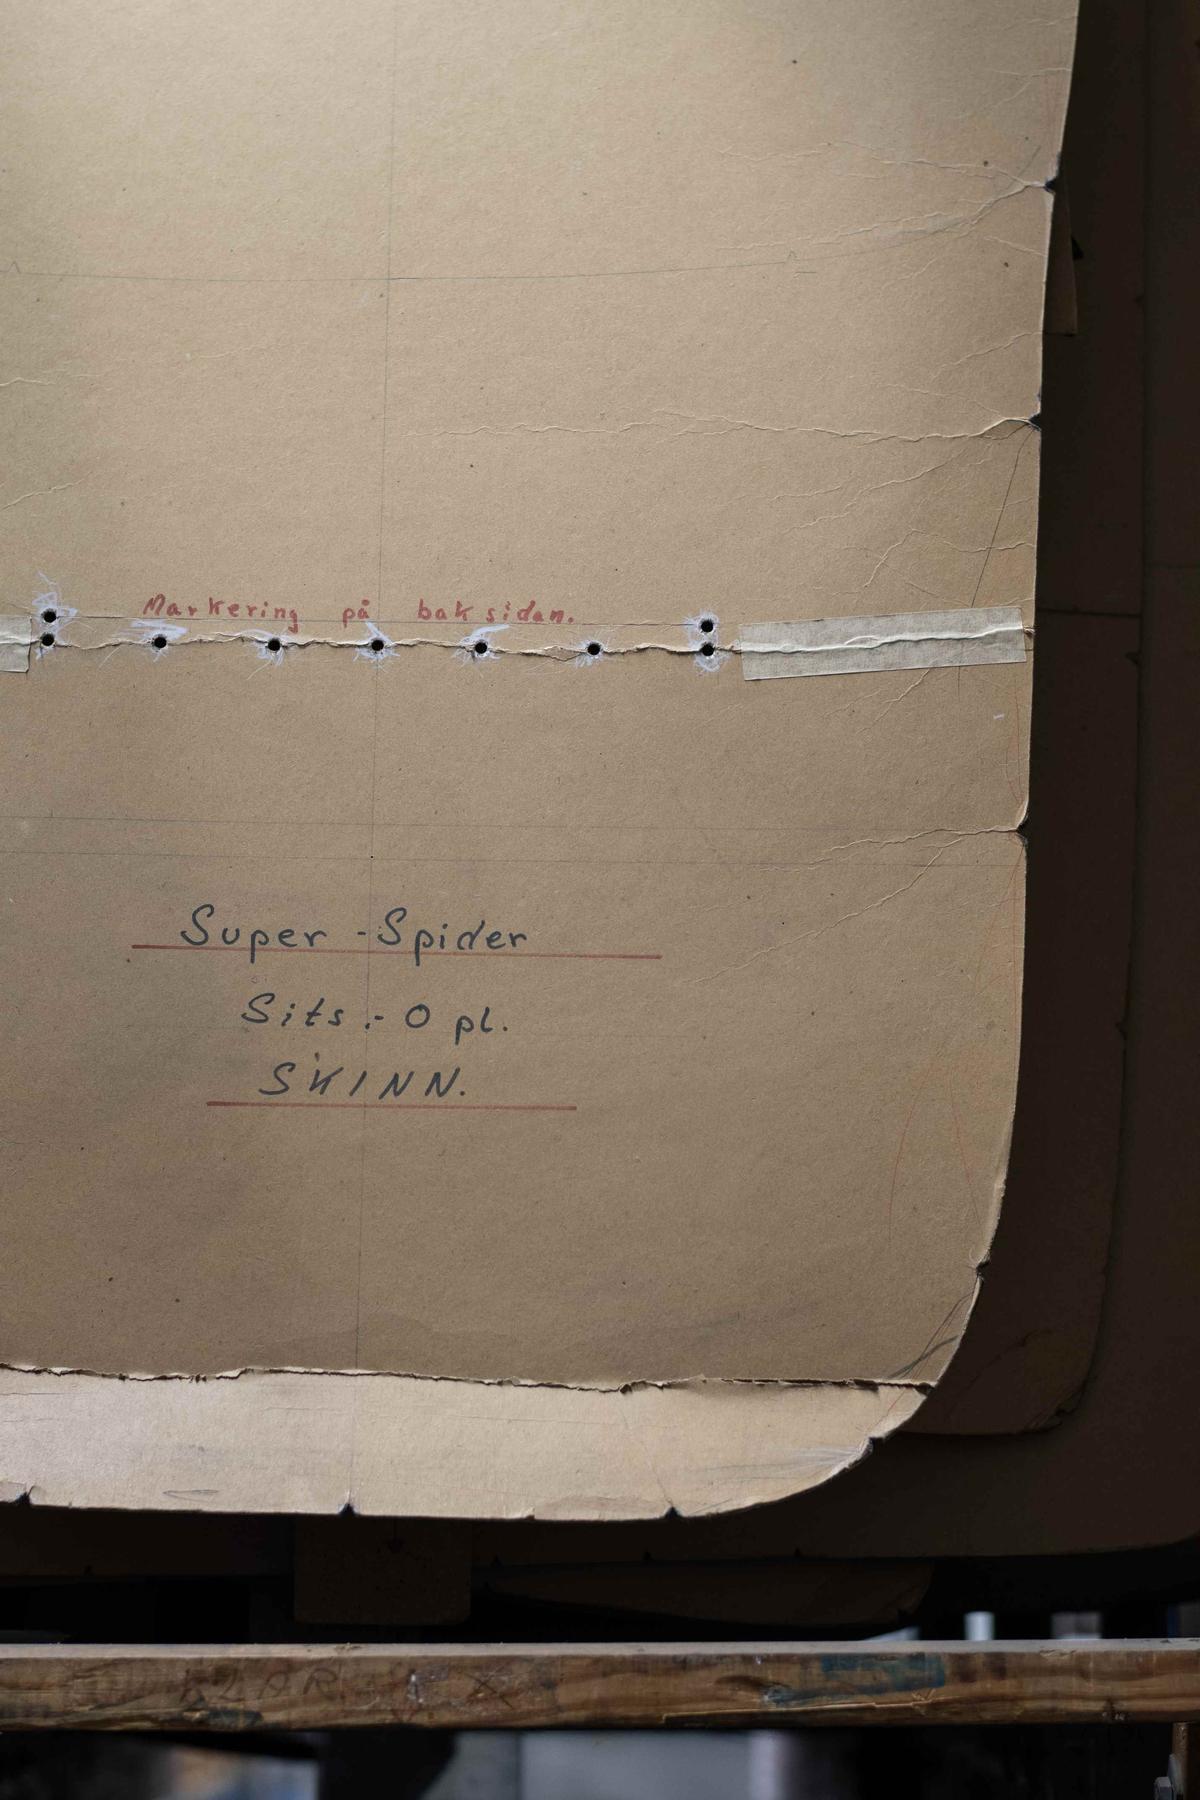 Markering på baksidan.
Super-Spider
Sits:- O pl.
SKINN.